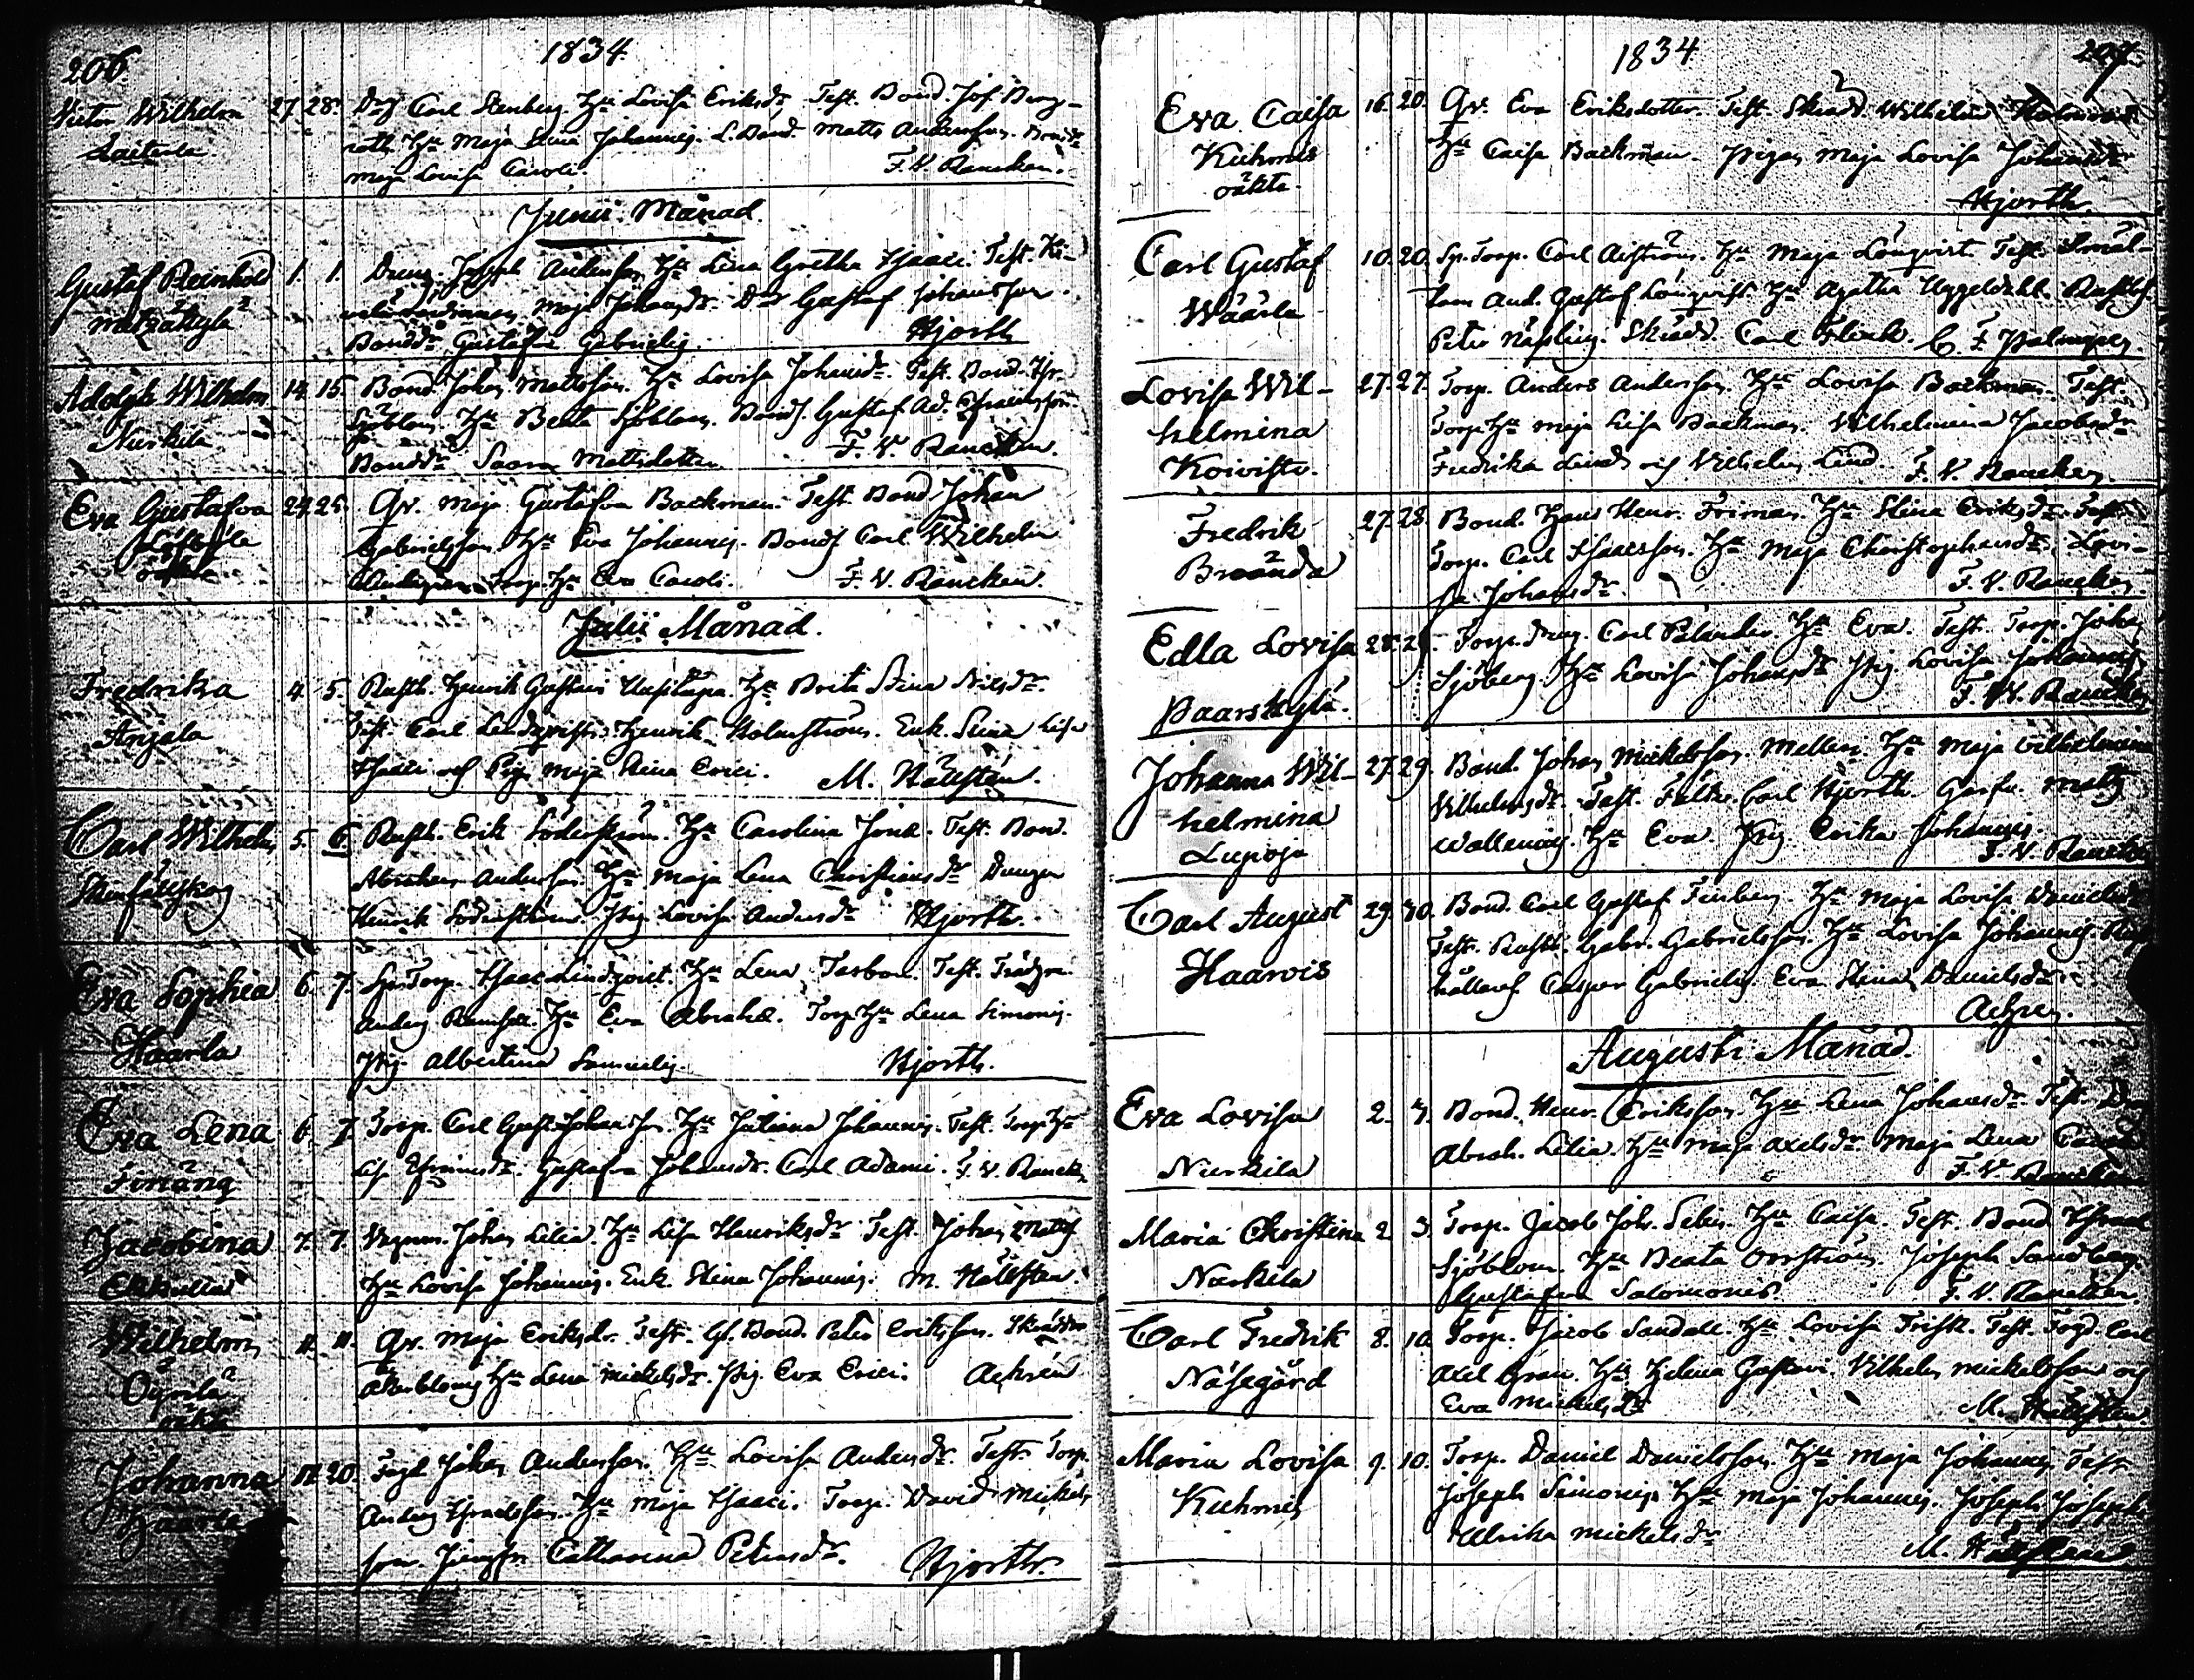 206
1834
Victor Wilhelm 27. 28. Carl Stenberg. Hu Lovisa Eriksdr. Test. Bond. Jos. Berg-
roth Hu Maja Lena Johannis. L. Bond. Matts Andersson.
Maja Lovisa Caroli. F. V. Rancken.
Junii Månad.
Gustaf Reinhold 1. 1. Dreng. Joseph Andersson Hu Lena Gretha Isaaci. Test.
Maja Johansdr. Gustaf Johansson.
Bonddr. Gustafva Gabrielis. Hjorth
Adolph Wilhelm 14. 15. Bond. Johan Mattsson. Hu Lovisa Johansdr. Test. Bond. Isr.
Nurkila Sjöblom. Hu Beata Sjöblom. Bonds. Gustaf Ad. Efraimsson.
Bonddr. Saara Mattsdotter F. V. Rancken.
Eva Gustafva 24. 25. Qv. Maja Gustafva Backman. Test. Bond. Johan
Gabrielsson. Hu Eva Johannis. Bonds. Carl Wilhelm
oäkta. Torp. Hu Eva Caroli. F. V. Rancken.
Julii Månad.
Fredrika 4. 5. Rusth. Henrik Gustavi Uusitupa. Hu Brita Stina Nilsdr.
Anjala Test. Carl Lindqvist. Henrik Holmström. Enk. Stina Lisa
Isaaci och Pig. Maja Stina Erici. M. Hällsten.
Carl Wilhelm 5. 6. Rusth. Erik Söderström. Hu Carolina Jonæ. Test. Bond.
Abraham Andersson Hu Maja Lena Christiansdr. Drengen
Henrik Söderström. Pig. Lovisa Andersdr. Hjorth.
Eva Sophia 6. 7. Sp. Torp. Isaac Lindqvist. Hu Lena Tasbom. Test.
Anders Ramsell. Hu Eva Abrahæ. Torp. Hu Lena Simonis.
Haarla Pig. Albertina Samuelis. Hjorth.
Eva Lena 6. 7. Torp. Carl Gust. Johansson. Hu Juliana Johannis. Test. Torp. Hu
Finäng Lisa Efraimsdr. Gustafva Johansdr. Carl Adami. F. V. Ranck.
Jacobina 7. 7. Johan Lilia. Hu Lisa Henriksdr. Test. Johan Matts.
Hu Lovisa Johannis. Enk. Stina Johannis. M. Hällsten.
Wilhelm 11. 11. Qv. Maja Eriksdr. Test. Gl. Bond. Petter Eriksson. Skrädd.
Öyrilä Åkerblom Hu Lena Mickelsdr. Pig. Eva Erici. Achrén
oäkta
Johanna 18. 20. Johan Andersson. Hu Lovisa Andersdr. Test. Torp.
Haarla Anders Israelsson. Hu Maja Isaaci. Torp. David Mickels-
son. Jungfr. Catharina Petersdr. Hjorth.
1834
207
Eva Caisa 16. 20. Qv. Eva Eriksdotter. Test. Skrädd. Wilhelm
Kuhmis Hu Caisa Backman. Pigan Maja Lovisa Johansdr
oäkta. Hjorth.
Carl Gustaf 10. 20. Sp. Torp. Carl Aiström. Hu Maja Lönqvist. Test.
And. Gustaf Lönqvist. Hu Agatha Uggeldahl.
Wäärlä Peter Näsling. Skrädd. Carl Flink. C. F. Palmgren.
Lovisa Wil- 27. 27. Torp. Anders Andersson. Hu Lovisa Backman. Test.
helmina Torp. Hu Maja Lisa Backman. Wilhelmina Jacobsdr
Koivisto. Fredrika Lind och Vilhelm Lind. F. V. Rancken
Fredrik 27. 28. Bond. Hans Henr. Friman. Hu Stina Eriksdr. Test.
Torp. Carl Isaacsson. Hu Maja Christophersdr. Lovi-
Broända sa Johansdr. F. V. Rancken
Edla Lovisa 28. 29. Torp. Dreng. Carl Palander. Hu Eva. Test. Torp. Johan
Sjöberg Hu Lovisa Johansdr Pig. Lovisa Johannis
Paarskylä. F. V. Rancken
Johanna Wil- 27. 29. Bond. Johan Mickelsson Melleri. Hu Maja Wilhelmina
helmina Vilhelmsdr. Test. Carl Hjorth. Garfv. Matts
Lupoja Wallenius. Hu Eva. Pig. Erika Johannis.
F. V. Rancken
Carl August 29. 30. Bond. Carl Gustaf Finberg. Hu Maja Lovisa Danielsdr
Test. Rusth. Gabr. Gabrielsson. Hu Lovisa Johannis. Rust-
Haarois hållars. Casper Gabrielis. Eva Stina Danielsdr.
Achren.
Augusti Månad.
Eva Lovisa 2. 3. Bond. Henr. Eriksson. Hu Lena Johansdr. Test.
Nurkila Abrah. Lilia. Hu Maja Axelsdr. Maja Lena
F. V. Rancken
Maria Christina 2. 3. Torp. Jacob Joh. Selin. Hu Caisa. Test. Bond. Israel
Nurkila Sjöblom. Hu Beata Orrström. Joseph Sandberg.
Gustafva Salomonis. F. V. Rancken.
Carl Fredrik 8. 10. Torp. Jacob Sandell. Hu Lovisa Frisk. Test. Torp. Carl
Näsegård Axel Gran. Hu Helena Gustavi. Vilhelm Mickelsson och
Eva Mickelsdr M. Hällsten.
Maria Lovisa 9. 10. Torp. Daniel Danielsson. Hu Maja Johannis. Test.
Kuhmis Joseph Simonis. Hu Maja Johannis. Joseph Josephi
Ulrika Mickelsdr M. Hällsten